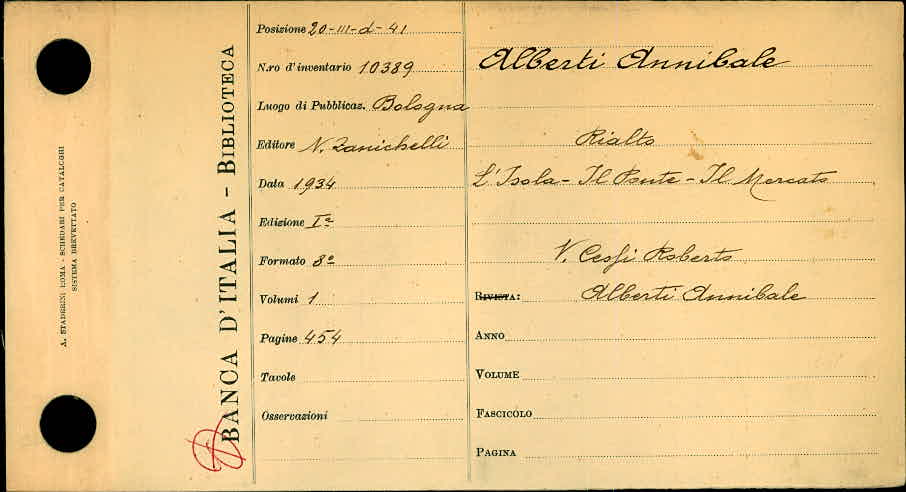 A. STADERINI ROMA - SCHEDARI PER CATALOGHI
SISTEMA BREVETTATO
BANCA D'ITALIA - BIBLIOTECA
Posizione 20-III-d-41
N.ro d'inventario 10389
Luogo di Pubblicaz. Bologna
Editore N. Zanichelli
Data 1934
Edizione Iª
Formato 8º
Volumi 1
Pagine 454
Tavole
Osservazioni
Alberti Annibale
Rialto
L'Isola - Il Ponte - Il Mercato
V. Cessi Roberto
RIVISTA: Alberti Annibale
ANNO
VOLUME
FASCICOLO
PAGINA